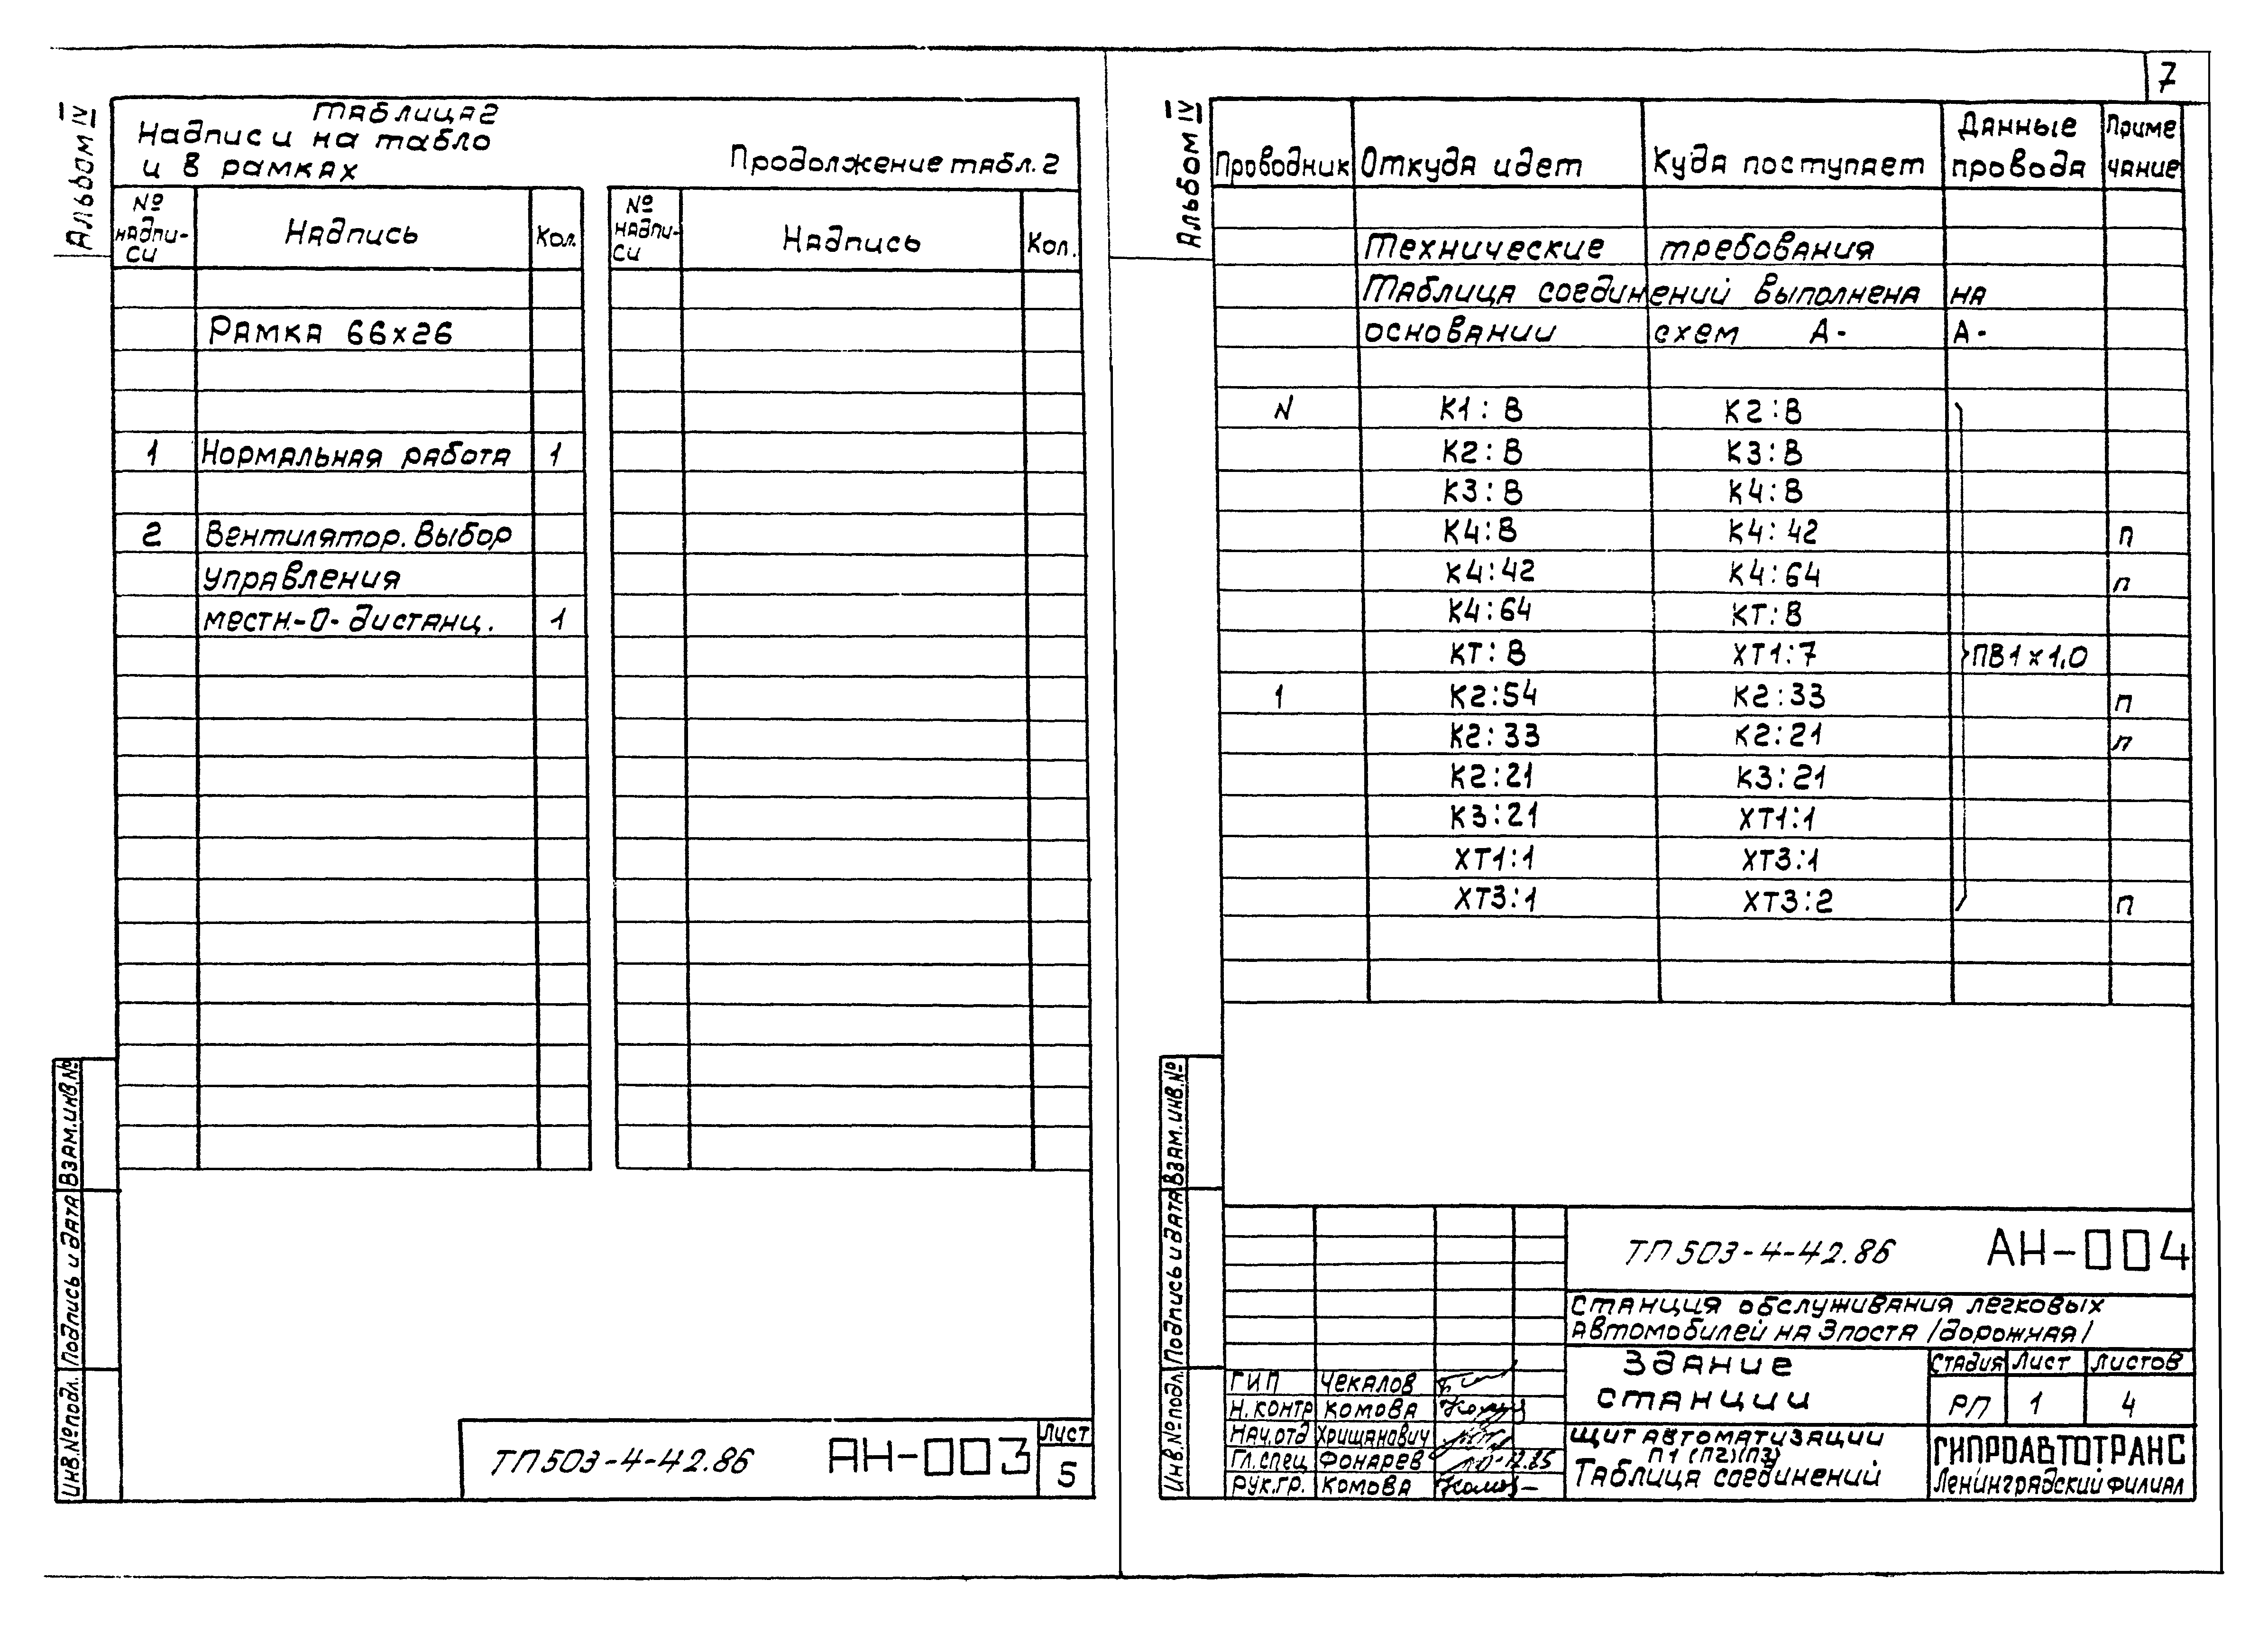 7
Альбом IV
Таблица 2
Надписи на табло
и в рамках
Продолжение табл. 2
№ надпи-си Надпись Кол.
№ надпи-си Надпись Кол.
Рамка 66х26
1 Нормальная работа 1
2 Вентилятор. Выбор
управления
местн.-О-дистанц. 1
Взам. инв. №
Подпись и дата
Инв. № подл.
ТП 503-4-42.86 АН-003
Лист
5
Альбом IV
Проводник Откуда идет Куда поступает Данные провода Приме чание
Технические требования
Таблица соединений выполнена на
основании схем А- А-
N К1:В К2:В
К2:В К3:В
К3:В К4:В
К4:В К4:42 п
К4:42 К4:64 п
К4:64 КТ:В
КТ:В ХТ1:7 ПВ1х1,0
1 К2:54 К2:33 п
К2:33 К2:21 п
К2:21 К3:21
К3:21 ХТ1:1
ХТ1:1 ХТ3:1
ХТ3:1 ХТ3:2 п
Взам. инв. №
Подпись и дата
Инв. № подл.
ТП 503-4-42.86 АН-004
Станция обслуживания легковых
автомобилей на 3 поста /дорожная/
Здание
станции
Стадия Лист Листов
РП 1 4
ГИП Чекалов
Н. контр Комова
Нач. отд Хрищанович
Гл. спец Фонарев
Рук. гр. Комова
Щит автоматизации
П1 (П2) (П3)
Таблица соединений
ГИПРОАВТОТРАНС
Ленинградский филиал